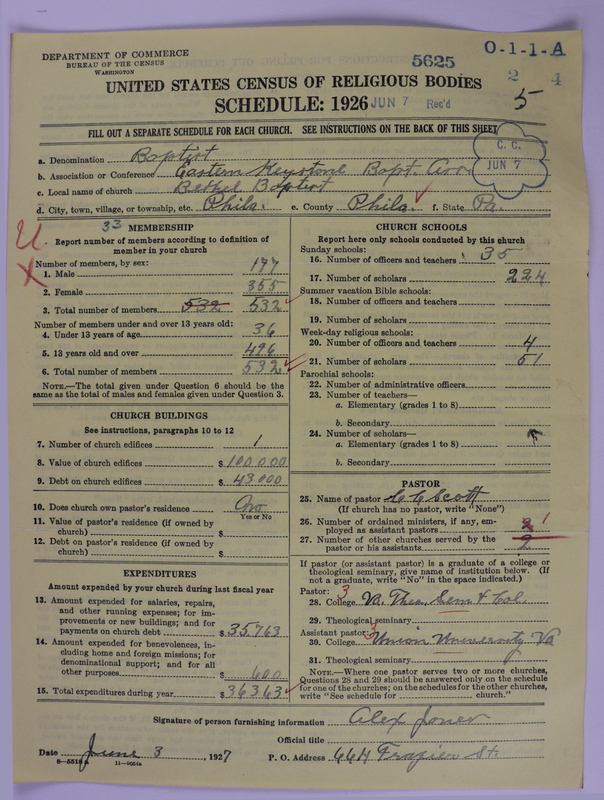 DEPARTMENT OF COMMERCE
BUREAU OF THE CENSUS
WASHINGTON
5625
O-1-1-A
2 4
UNITED STATES CENSUS OF RELIGIOUS BODIES
SCHEDULE: 1926 JUN 7 Rec'd 5
FILL OUT A SEPARATE SCHEDULE FOR EACH CHURCH. SEE INSTRUCTIONS ON THE BACK OF THIS SHEET
C. C.
JUN 7
a. Denomination Baptist
b. Association or Conference Eastern Keystone Bapt. Asso.
c. Local name of church Bethel Baptist
d. City, town, village, or township, etc. Phila. e. County Phila. f. State Pa.
33 MEMBERSHIP
Report number of members according to definition of
member in your church
Number of members, by sex:
1. Male 177
2. Female 355
3. Total number of members 532 532
Number of members under and over 13 years old:
4. Under 13 years of age 36
5. 13 years old and over 496
6. Total number of members 532
NOTE.—The total given under Question 6 should be the
same as the total of males and females given under Question 3.
CHURCH BUILDINGS
See instructions, paragraphs 10 to 12
7. Number of church edifices 1
8. Value of church edifices $ 100000
9. Debt on church edifices $ 43000
10. Does church own pastor's residence? No
Yes or No
11. Value of pastor's residence (if owned by
church) $
12. Debt on pastor's residence (if owned by
church) $
EXPENDITURES
Amount expended by your church during last fiscal year
13. Amount expended for salaries, repairs,
and other running expenses; for im-
provements or new buildings; and for
payments on church debt $ 35763
14. Amount expended for benevolences, in-
cluding home and foreign missions; for
denominational support; and for all
other purposes $ 600
15. Total expenditures during year $ 36363
CHURCH SCHOOLS
Report here only schools conducted by this church
Sunday schools:
16. Number of officers and teachers 35
17. Number of scholars 224
Summer vacation Bible schools:
18. Number of officers and teachers
19. Number of scholars
Week-day religious schools:
20. Number of officers and teachers 4
21. Number of scholars 51
Parochial schools:
22. Number of administrative officers
23. Number of teachers—
a. Elementary (grades 1 to 8)
b. Secondary
24. Number of scholars—
a. Elementary (grades 1 to 8)
b. Secondary
PASTOR
25. Name of pastor C C Scott
(If church has no pastor, write "None")
26. Number of ordained ministers, if any, em-
ployed as assistant pastors 2 1
27. Number of other churches served by the
pastor or his assistants 2
If pastor (or assistant pastor) is a graduate of a college or
theological seminary, give name of institution below. (If
not a graduate, write "No" in the space indicated.)
Pastor: 3
28. College Va. Theo. Sem & Col.
29. Theological seminary
Assistant pastor: 3
30. College Union University Va
31. Theological seminary
NOTE.—Where one pastor serves two or more churches,
Questions 28 and 29 should be answered only on the schedule
for one of the churches; on the schedules for the other churches,
write "See schedule for church."
Signature of person furnishing information Alex Jones
Official title
Date June 3, 1927 P. O. Address 664 Frazier St.
8—5518a 11—9054a